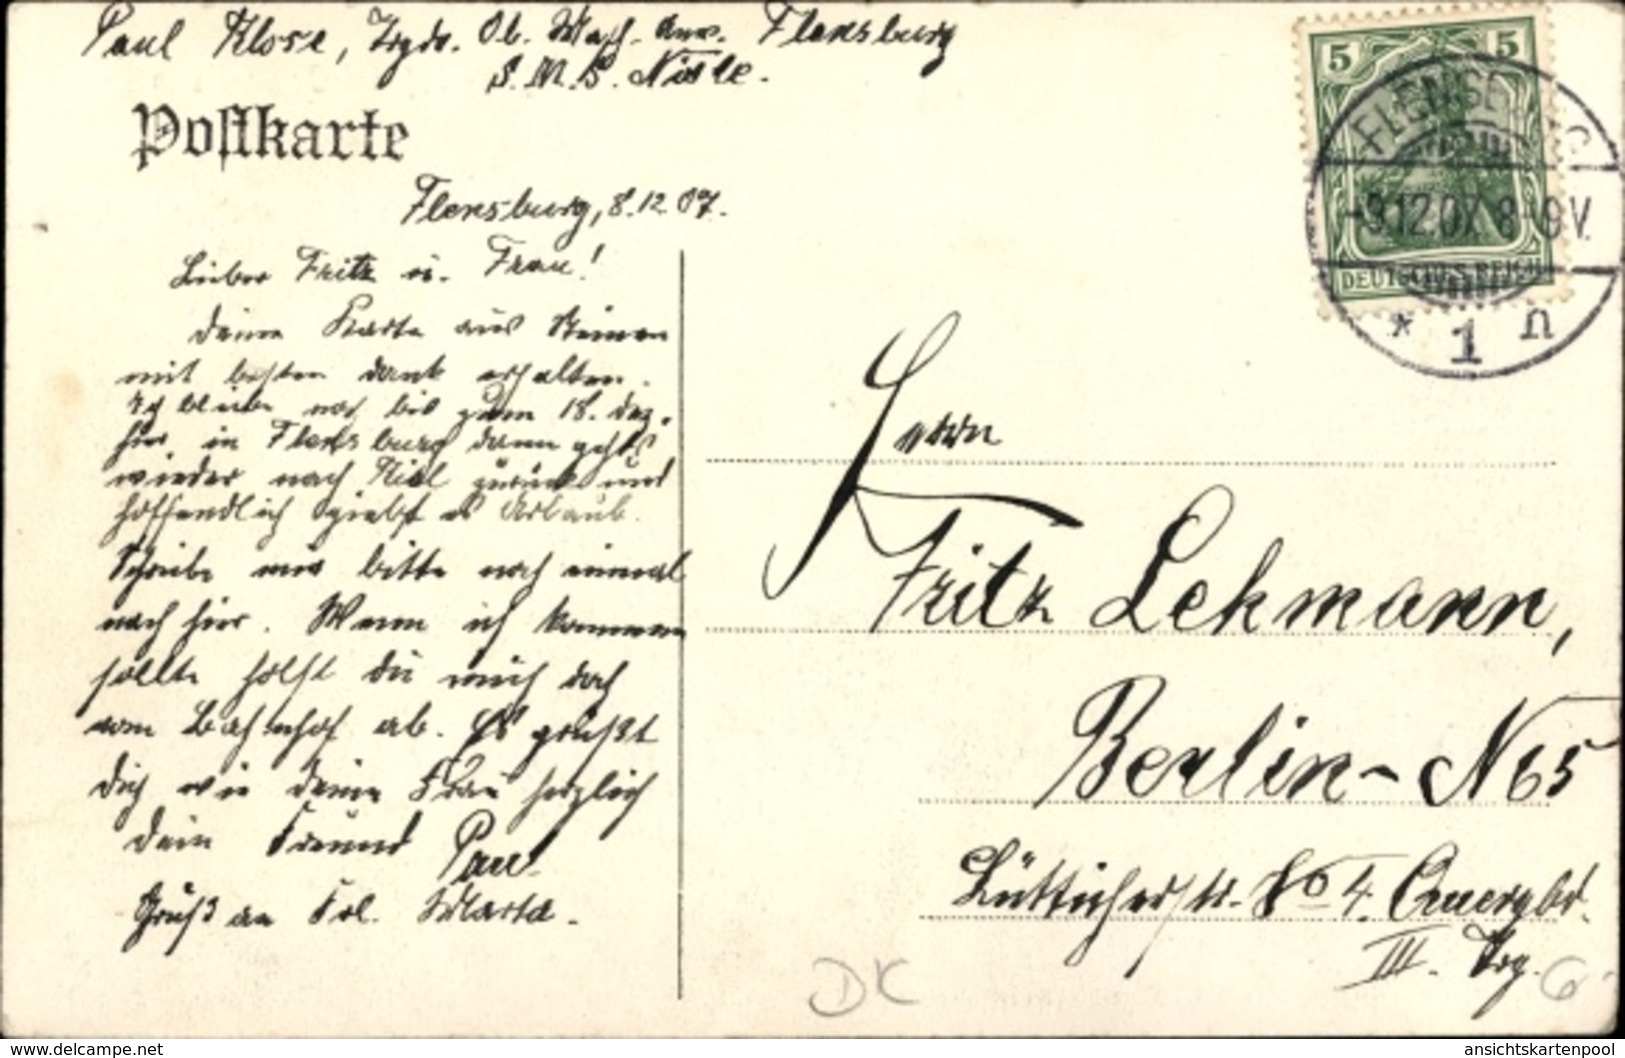 Paul Klose, Ob. Flensburg
S.M.S. Niobe.
Postkarte
Flensburg, 8.12.07.
Lieber Fritz u. Frau!
deine Karte aus
mit besten dank erhalten.
Ich bleibe noch bis zum 18. Dez.
hier in Flensburg dann gehts
wieder nach Kiel zurück und
hoffendlich giebt es Urlaub.
Schreibe mir bitte noch einmal
nach hier. Wenn ich kommen
sollte holst du mich doch
vom Bahnhof ab. Es grüßt
dich wie deine Frau herzlich
dein Freund Paul
Gruß an Frl. Marta.
5 5
FLENSBURG
-9.12.07. 8-9V.
DEUTSCHES REICH
* 1 n
Herrn
Fritz Lehmann,
Berlin-N65
Lütticherstr. No 4. Quergbd.
III. Trg.
DK
6
www.delcampe.net
ansichtskartenpool